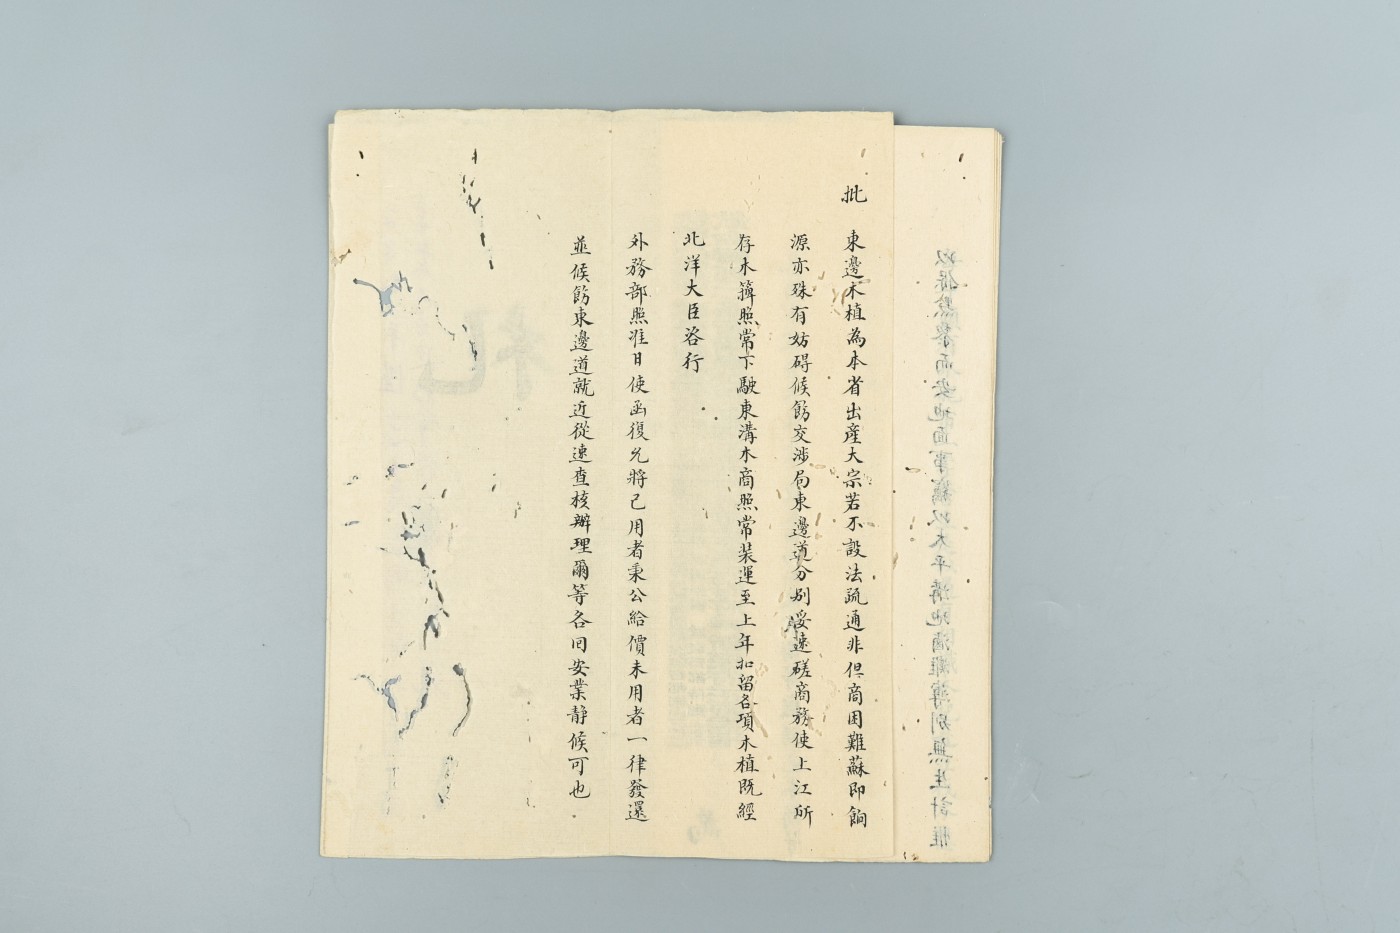 批
東邊木植為本省出產大宗若不設法疏通非但商困難蘇即餉
源亦殊有妨碍候飭交涉局東邊道分别妥速磋商務使上江所
存木簰照常下駛東溝木商照常裝運至上年扣留各項木植既經
北洋大臣咨行
外務部照准日使函復允將已用者秉公給價未用者一律發還
並候飭東邊道就近從速查核辦理爾等各回安業靜候可也